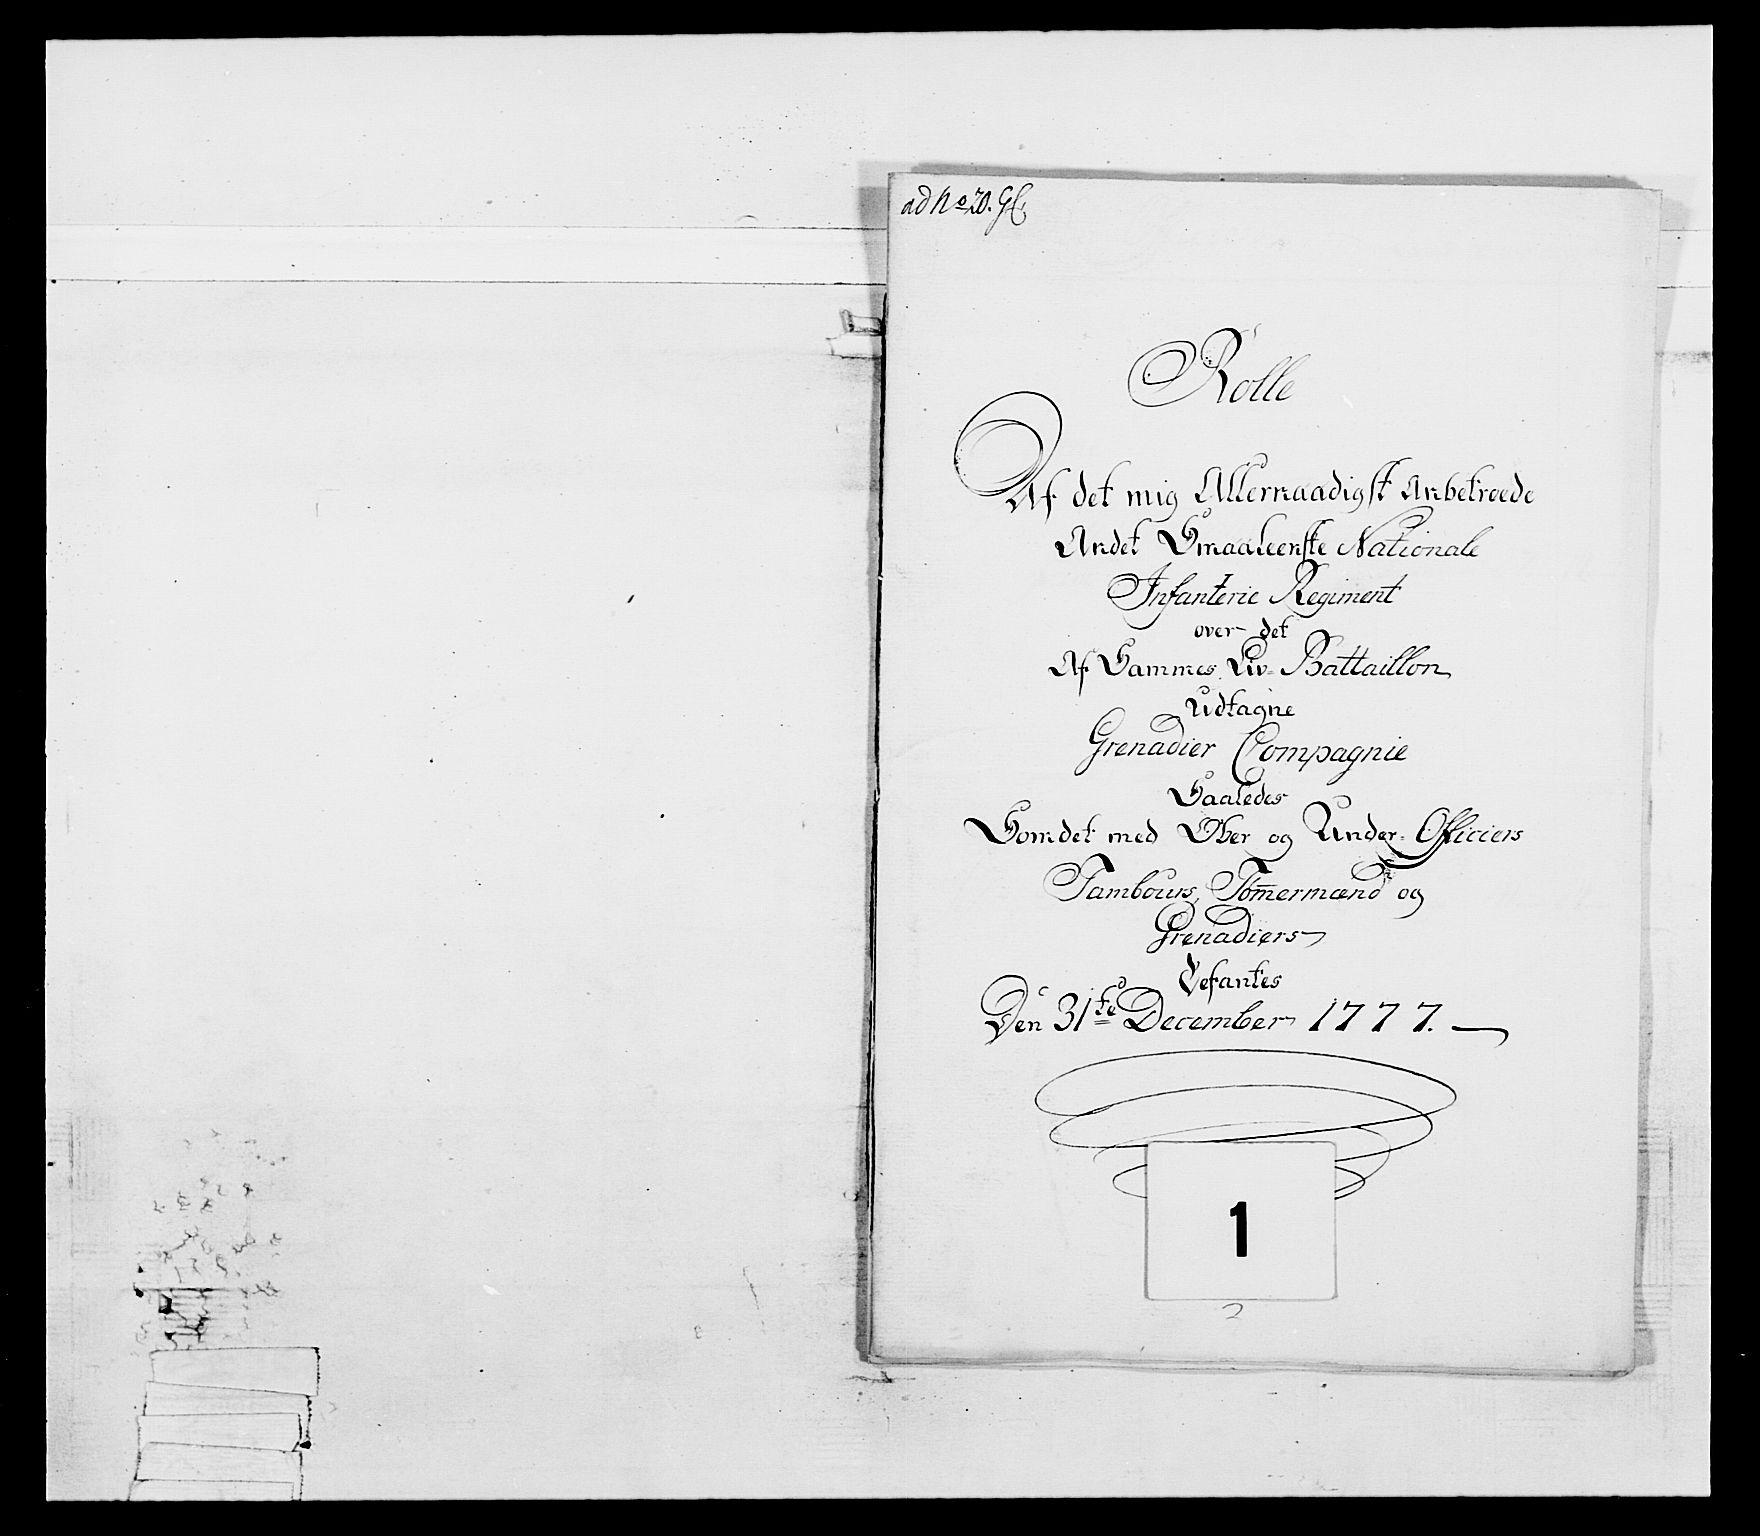 ad No 20. GC.
Rolle
Af det mig Allernaadigst Anbetroede
Andet Smaaleenske Nationale
Infanterie Regiment
over det
Af Sammes Liv-Battaillon
Udtagne
Grenadier Compagnie
Saaledes
Som det med Ober og Under-Officiers
Tambours, Tom̅ermænd og
Grenadiers
Befantes
Den 31te December 1777.
1
2